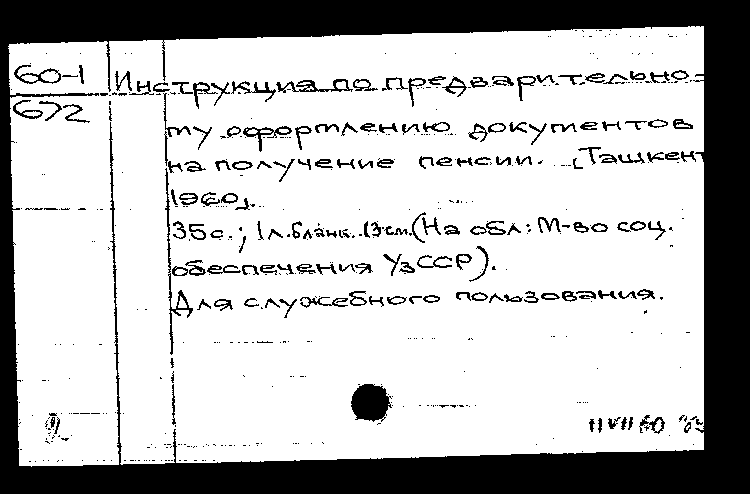 60-1
672
Инструкция по предварительно-
му оформлению документов
на получение пенсии. [Ташкент
1960].
35с.; 1л.бланк. 13см.(На обл: М-во соц.
обеспечения УзССР).
Для служебного пользования.
11 VII 60